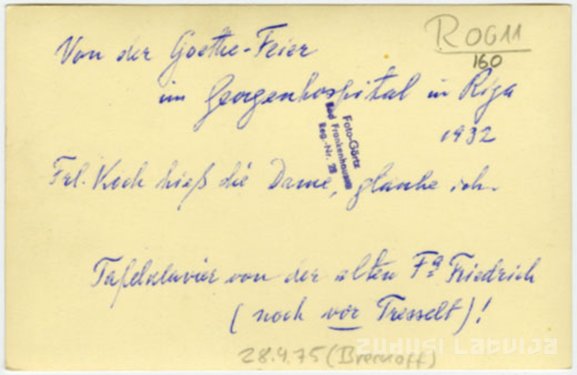 R0611
160
Von der Goethe-Feier
im Georgenhospital in Riga
1932
Foto-Görtz
Bad Frankenhausen
Reg.-Nr. 28
Frl. Koch hieß die Dame, glaube ich.
Tafelklavier von der alten Fa Friedrich
(noch vor Tresselt)!
28.4.75 (Bremoff)
zudusi Latvija